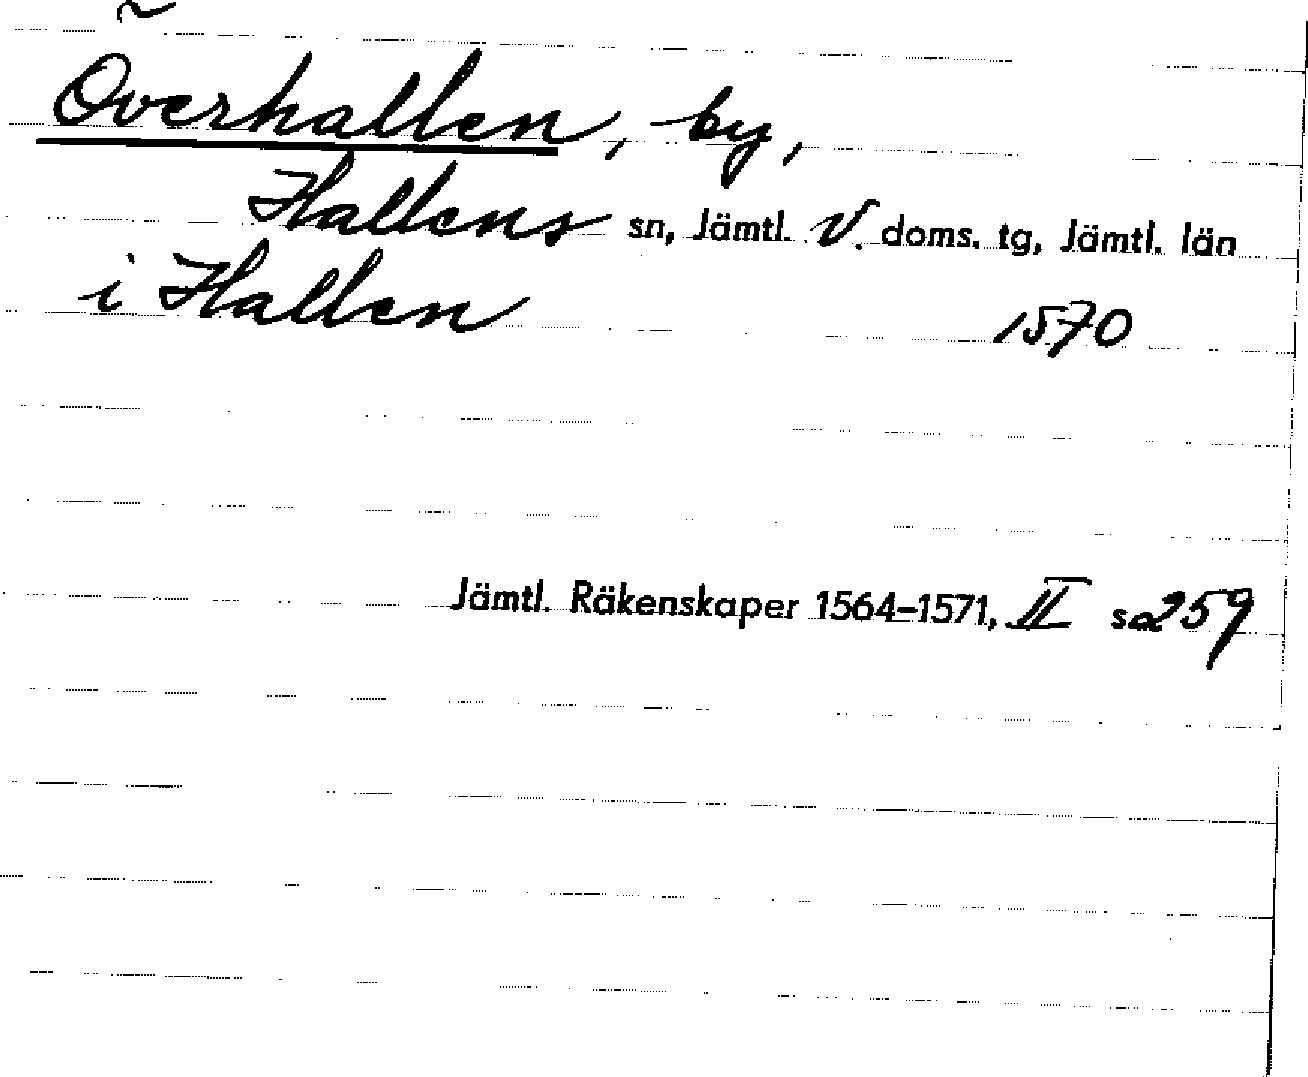 Överhallen, by,
Hallens sn, Jämtl. V. doms. tg, Jämtl. län
i Hallen 1570
Jämtl. Räkenskaper 1564–1571, II s. 259